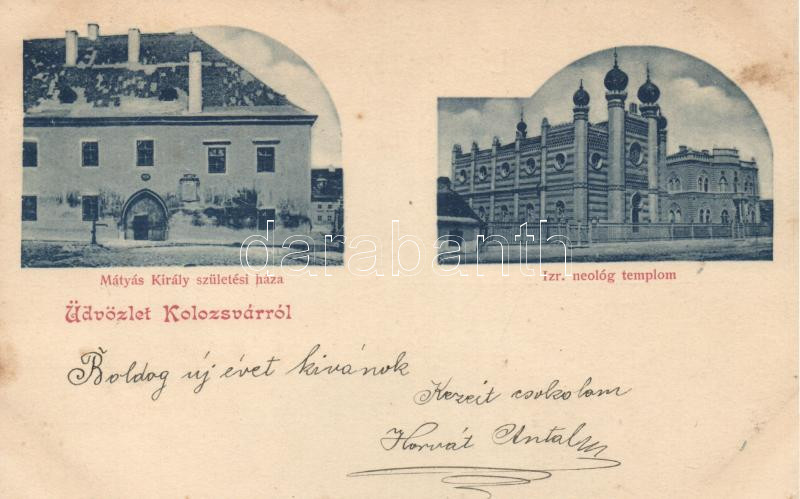 Mátyás Király születési háza
Izr. neológ templom
Üdvözlet Kolozsvárról
Boldog új évet kivánok
Kezeit csokolom
Horvát Antal
darabanth